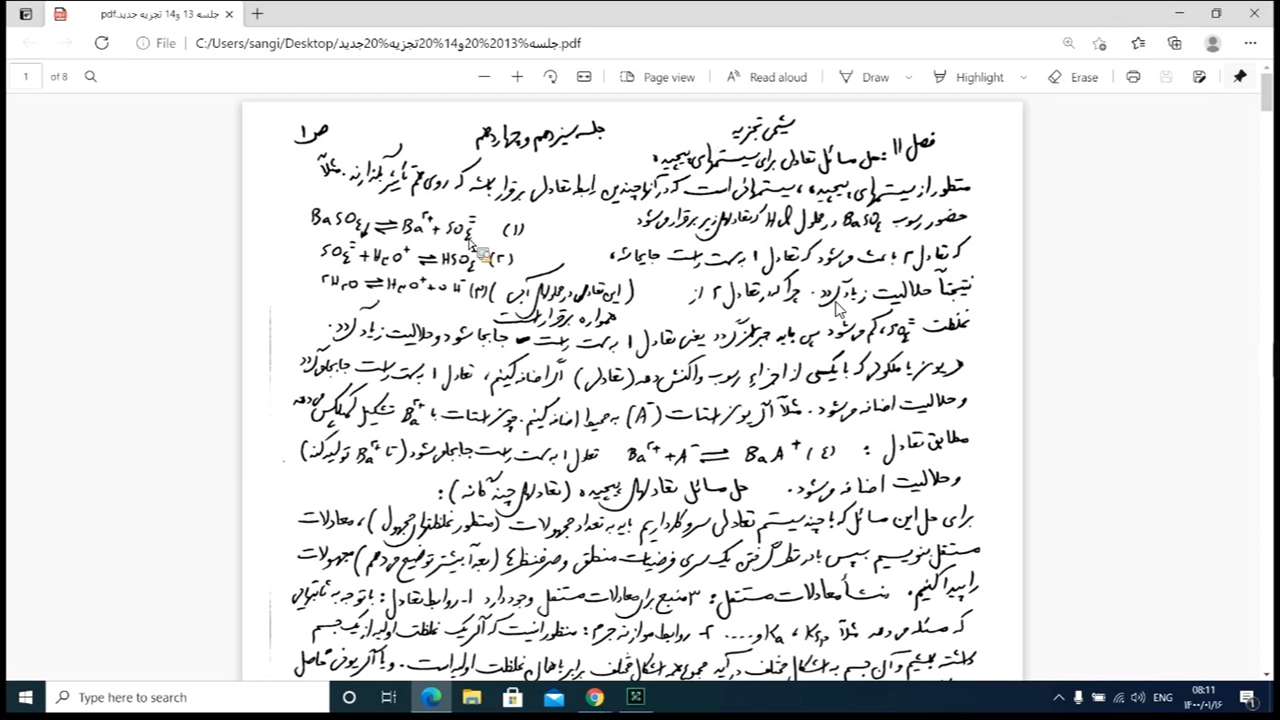 جلسه 13 و14 تجزیه جدید.pdf
File
C:/Users/sangi/Desktop/جلسه%2013%20و14%20تجزیه%20جدید.pdf
1 of 8
Page view
Read aloud
Draw
Highlight
Erase
شیمی تجزیه جلسه سیزدهم و چهاردهم ص۱
فصل ۱۱: حل مسائل تعادل برای سیستمهای پیچیده
منظور از سیستمهای پیچیده، سیستمهائی است که در آنها چندین رابطه تعادل برقرار باشد که روی هم تأثیر بگذارند. مثلاً
حضور رسوب BaSO₄ در محلول HCl که تعادلهای زیر برقرار میشود BaSO₄ ⇌ Ba²⁺ + SO₄⁼ (۱)
که تعادل ۲ باعث میشود که تعادل ۱ به سمت راست جابجا شده، SO₄⁼ + H₃O⁺ ⇌ HSO₄⁻ (۲)
نتیجتاً حلالیت زیاد گردد. چرا که در تعادل ۲ از (این تعادل در محلولهای آبی همواره برقرار است) ۲H₂O ⇌ H₃O⁺ + OH⁻ (۳)
غلظت SO₄⁼ کم میشود پس باید جبران گردد یعنی تعادل ۱ به سمت راست جابجا شود و حلالیت زیاد گردد.
هر یون یا مولکولی که با یکی از اجزاء رسوب واکنش دهد (تعادل) اگر اضافه کنیم، تعادل ۱ به سمت راست جابجا میگردد
و حلالیت اضافه میشود. مثلاً اگر یون استات (A⁻) به محیط اضافه کنیم. چون استات با Ba²⁺ تشکیل کمپلکس می‌دهد
مطابق تعادل: Ba²⁺ + A⁻ ⇌ BaA⁺ (۴) تعادل ۱ به سمت راست جابجا میشود (تا Ba²⁺ تولید کند)
و حلالیت اضافه میشود. حل مسائل تعادلهای پیچیده (تعادلهای چند گانه):
برای حل این مسائل که با چند سیستم تعادلی سروکار داریم باید به تعداد مجهولات (منظور غلظتهای مجهول)، معادلات
مستقل بنویسیم سپس با در نظر گرفتن یک سری فرضیات منطقی و صرفنظرها (بعداً بیشتر توضیح می‌دهم) مجهولات
را پیدا کنیم. منشأ معادلات مستقل: ۳ منبع برای معادلات مستقل وجود دارد ۱- روابط تعادل: با توجه به ثابتهایی
که مسئله می‌دهد مثلاً Ksp، Ka و .... ۲- روابط موازنه جرم: منظور اینست که اگر یک غلظت اولیه از یک جسم
داشته باشیم و آن جسم به اشکال مختلف درآید مجموع همه اشکال مختلف برابر با همان غلظت اولیه است. و یا اگر یونی حاصل
Type here to search
ENG
08:11
۱۴۰۰/۰۱/۱۶
1